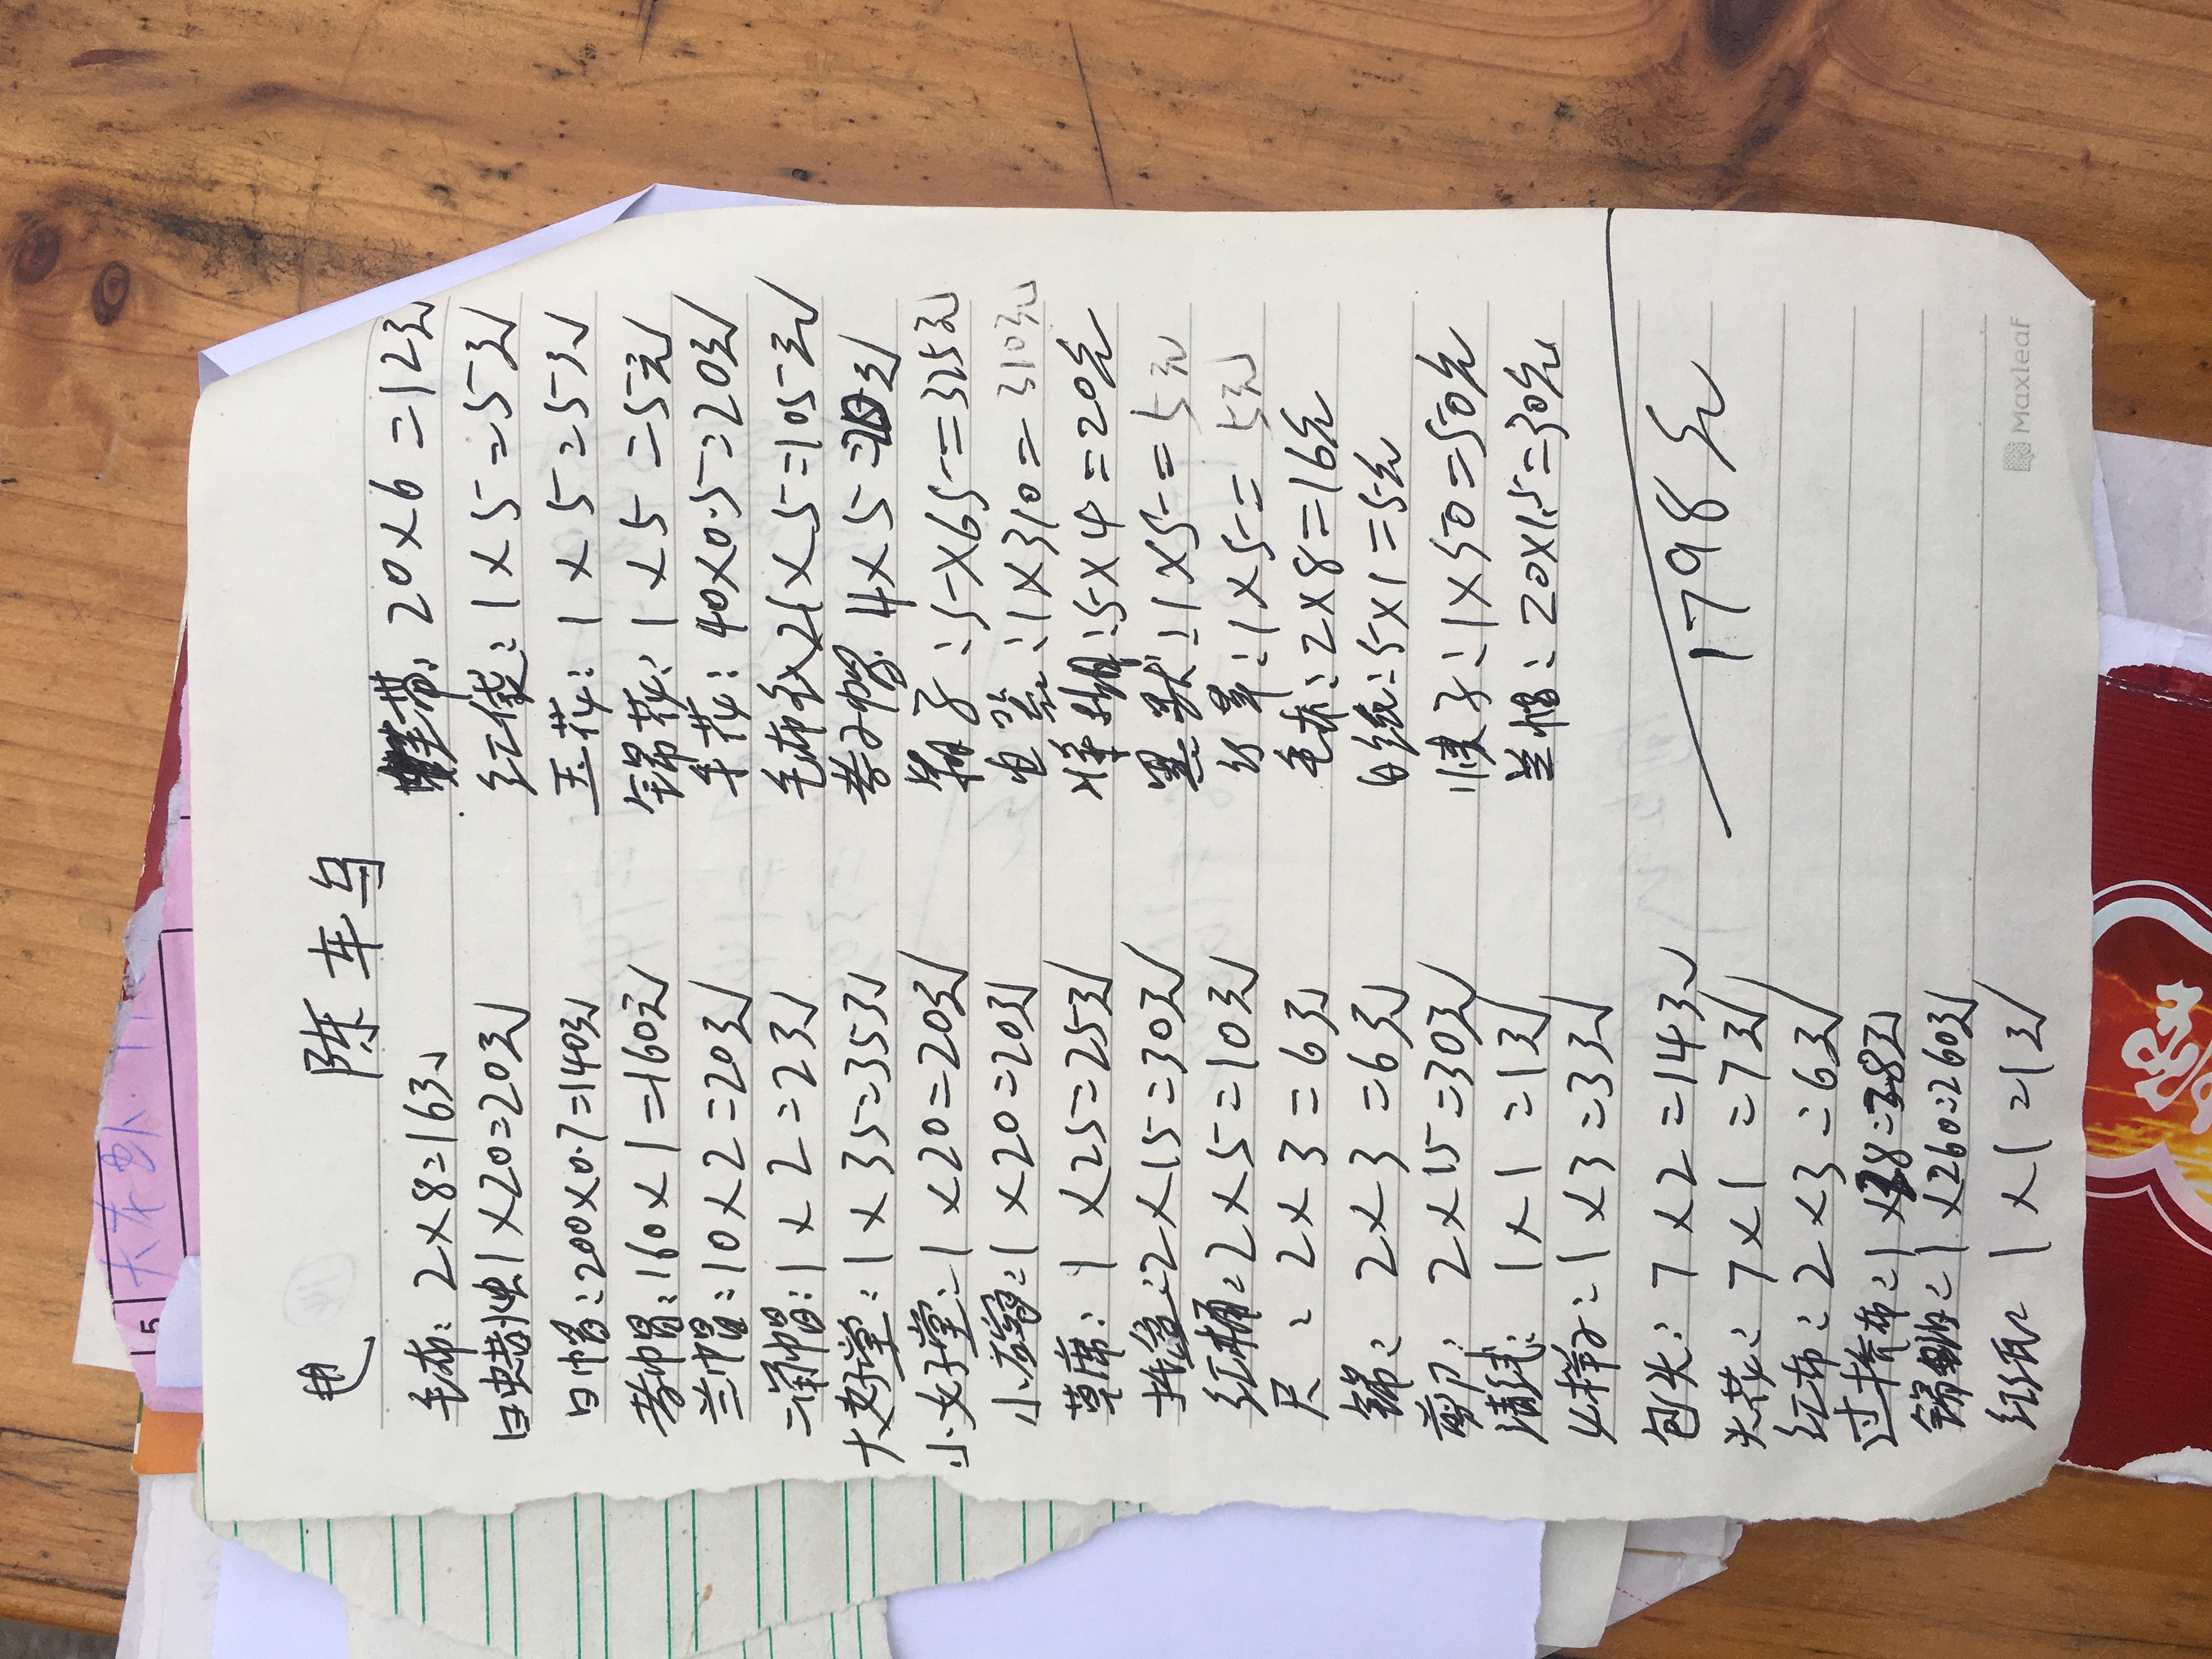 5
陈车乌
毛布: 2×8=16元
白蜡烛 1×20=20元
白帽: 200×0.7=140元
孝帽: 160×1=160元
兰帽: 10×2=20元
二角帽: 1×2=2元
大好堂: 1×35=35元
小女子堂: 1×20=20元
1×20=20元
草席: 1×25=25元
托盒: 2×15=30元
红桶: 2×5=10元
尺: 2×3=6元
锑: 2×3=6元
剪刀: 2×15=30元
1×1=1元
1×3=3元
包头: 7×2=14元
头花: 7×1=7元
红布: 2×3=6元
布: 1×28=28元
1×260=260元
红纸: 1×1=1元
带: 20×6=12元
红袋: 1×5=5元
玉花: 1×5=5元
锑花: 1×5=5元
手花: 40×0.5=20元
毛布衣 21×5=105元
孝子帽 4×5=20元
子: 5×65=325元
1×310=310元
5×4=20元
1×5=5元
1×5=5元
毛布: 2×8=16元
白纸: 5×1=5元
子: 1×50=50元
兰帽: 20×1.5=30元
1798元
Maxleaf